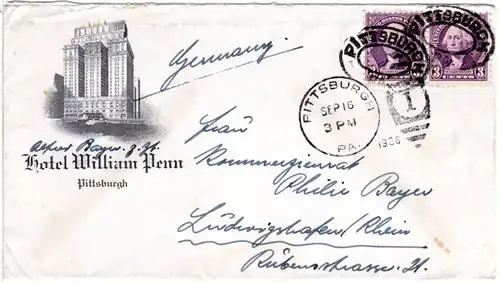 Germany.
PITTSBURGH
PITTSBURGH
3 CENTS 3
PITTSBURGH
SEP 16
3 PM
PA.
1936
1
Alfred Bayer z. Zt.
Hotel William Penn
Pittsburgh
Frau
Kommerzienrat
Philie Bayer
Ludwigshafen/Rhein
Rubensstrasse